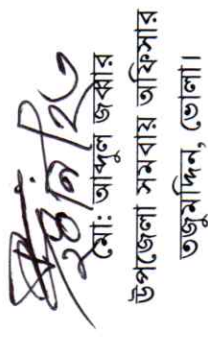 মো: আব্দুল জব্বার
উপজেলা সমবায় অফিসার
তজুমদ্দিন, ভোলা।